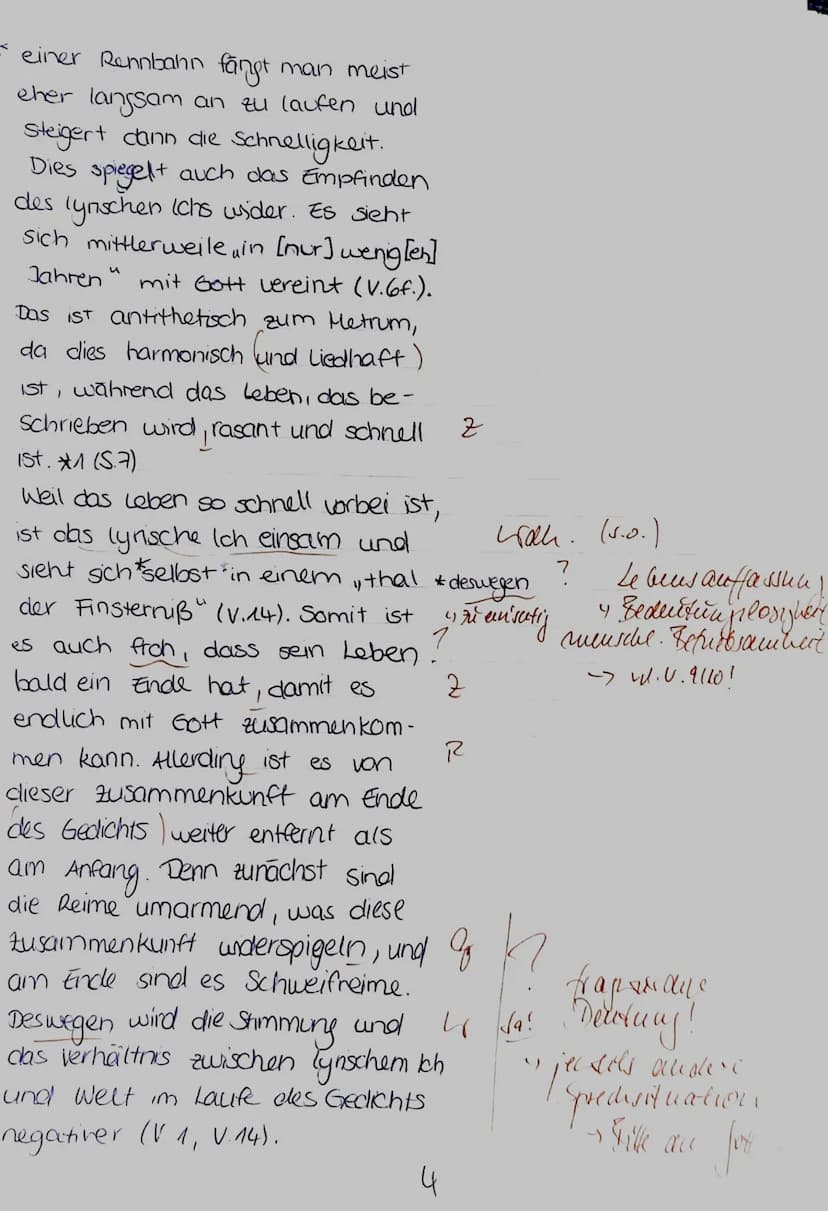 einer Rennbahn fängt man meist
eher langsam an zu laufen und
steigert dann die Schnelligkeit.
Dies spiegelt auch das Empfinden
des lyrischen Ichs wider. Es sieht
sich mittlerweile „in [nur] wenig[en]
Jahren" mit Gott vereint (V.6f.).
Das ist antithetisch zum Metrum,
da dies harmonisch (und Liedhaft)
ist, während das Leben, das be-
schrieben wird, rasant und schnell Z
ist. *1 (S.7)
Weil das Leben so schnell vorbei ist,
ist das lyrische Ich einsam und (s.o.)
sieht sich *selbst in einem „thal *deswegen ? Lebensauffassung
der Finsterniß" (V.14). Somit ist
es auch froh, dass sein Leben ?
bald ein Ende hat, damit es Z
endlich mit Gott zusammenkom-
men kann. Allerding ist es von R
dieser Zusammenkunft am Ende
des Gedichts) weiter entfernt als
am Anfang. Denn zunächst sind
die Reime umarmend, was diese
Zusammenkunft widerspigeln, und
am Ende sind es Schweifreime. ? fragwürdige
Deswegen wird die Stimmung und Sa! Deutung!
das Verhältnis zwischen lyrischem Ich andere
und Welt im Laufe des Gedichts Sprechsituation
negativer (V 1, V.14). → Bitte an Gott
4